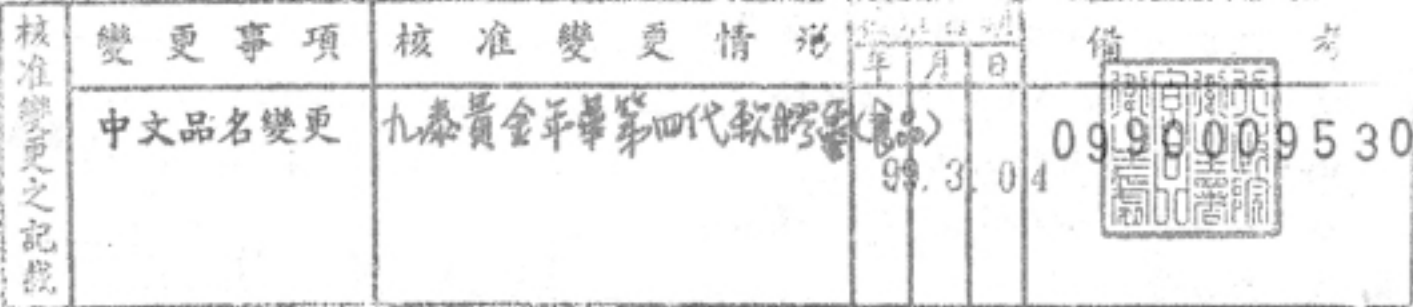 核准變更之記載
變更事項 核准變更情形 核准日期 備考
年 月 日
中文品名變更 九泰貴金年華第四代軟膠囊(食品) 99.3.04 0990009530
行政院衛生署